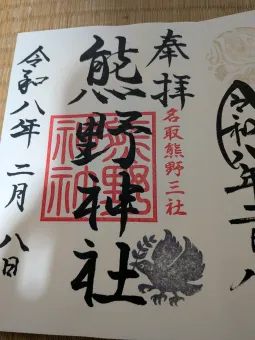 奉拝
名取熊野三社
熊野神社
熊野神社
令和八年 二月 八日
令和八年二月八